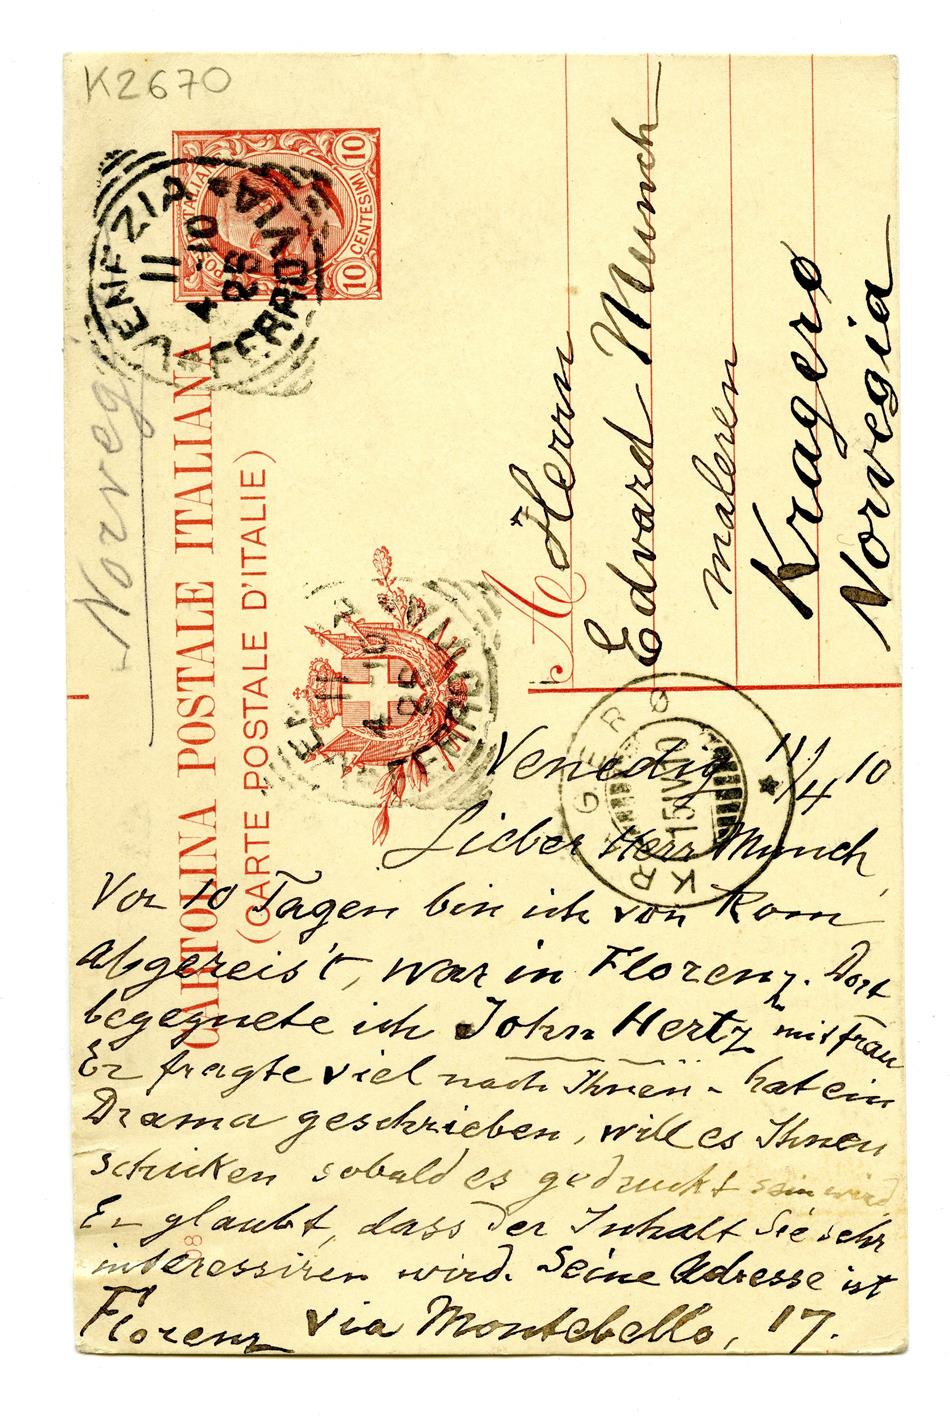 K2670
POSTE ITALIANE
10 CENTESIMI 10
VENEZIA
11 - 10
4
25
FERROVIA
Norveg
CARTOLINA POSTALE ITALIANA
(CARTE POSTALE D'ITALIE)
11
4 10
25
FERROVIA
A Herrn
Edvard Munch
maleren
Kragerø
Norvegia
KRAGERØ
15 IV 10
Venedig 11/4 10
Lieber Herr Munch,
Vor 10 Tagen bin ich von Rom
abgereis't, war in Florenz. Dort
begegnete ich John Hertz mit Frau
Er fragte viel nach Ihnen - hat ein
Drama geschrieben, will es Ihnen
schicken sobald es gedruckt sein wird
Er glaubt, dass der Inhalt Sie sehr
interessiren wird. Seine Adresse ist
Florenz via Montebello, 17.